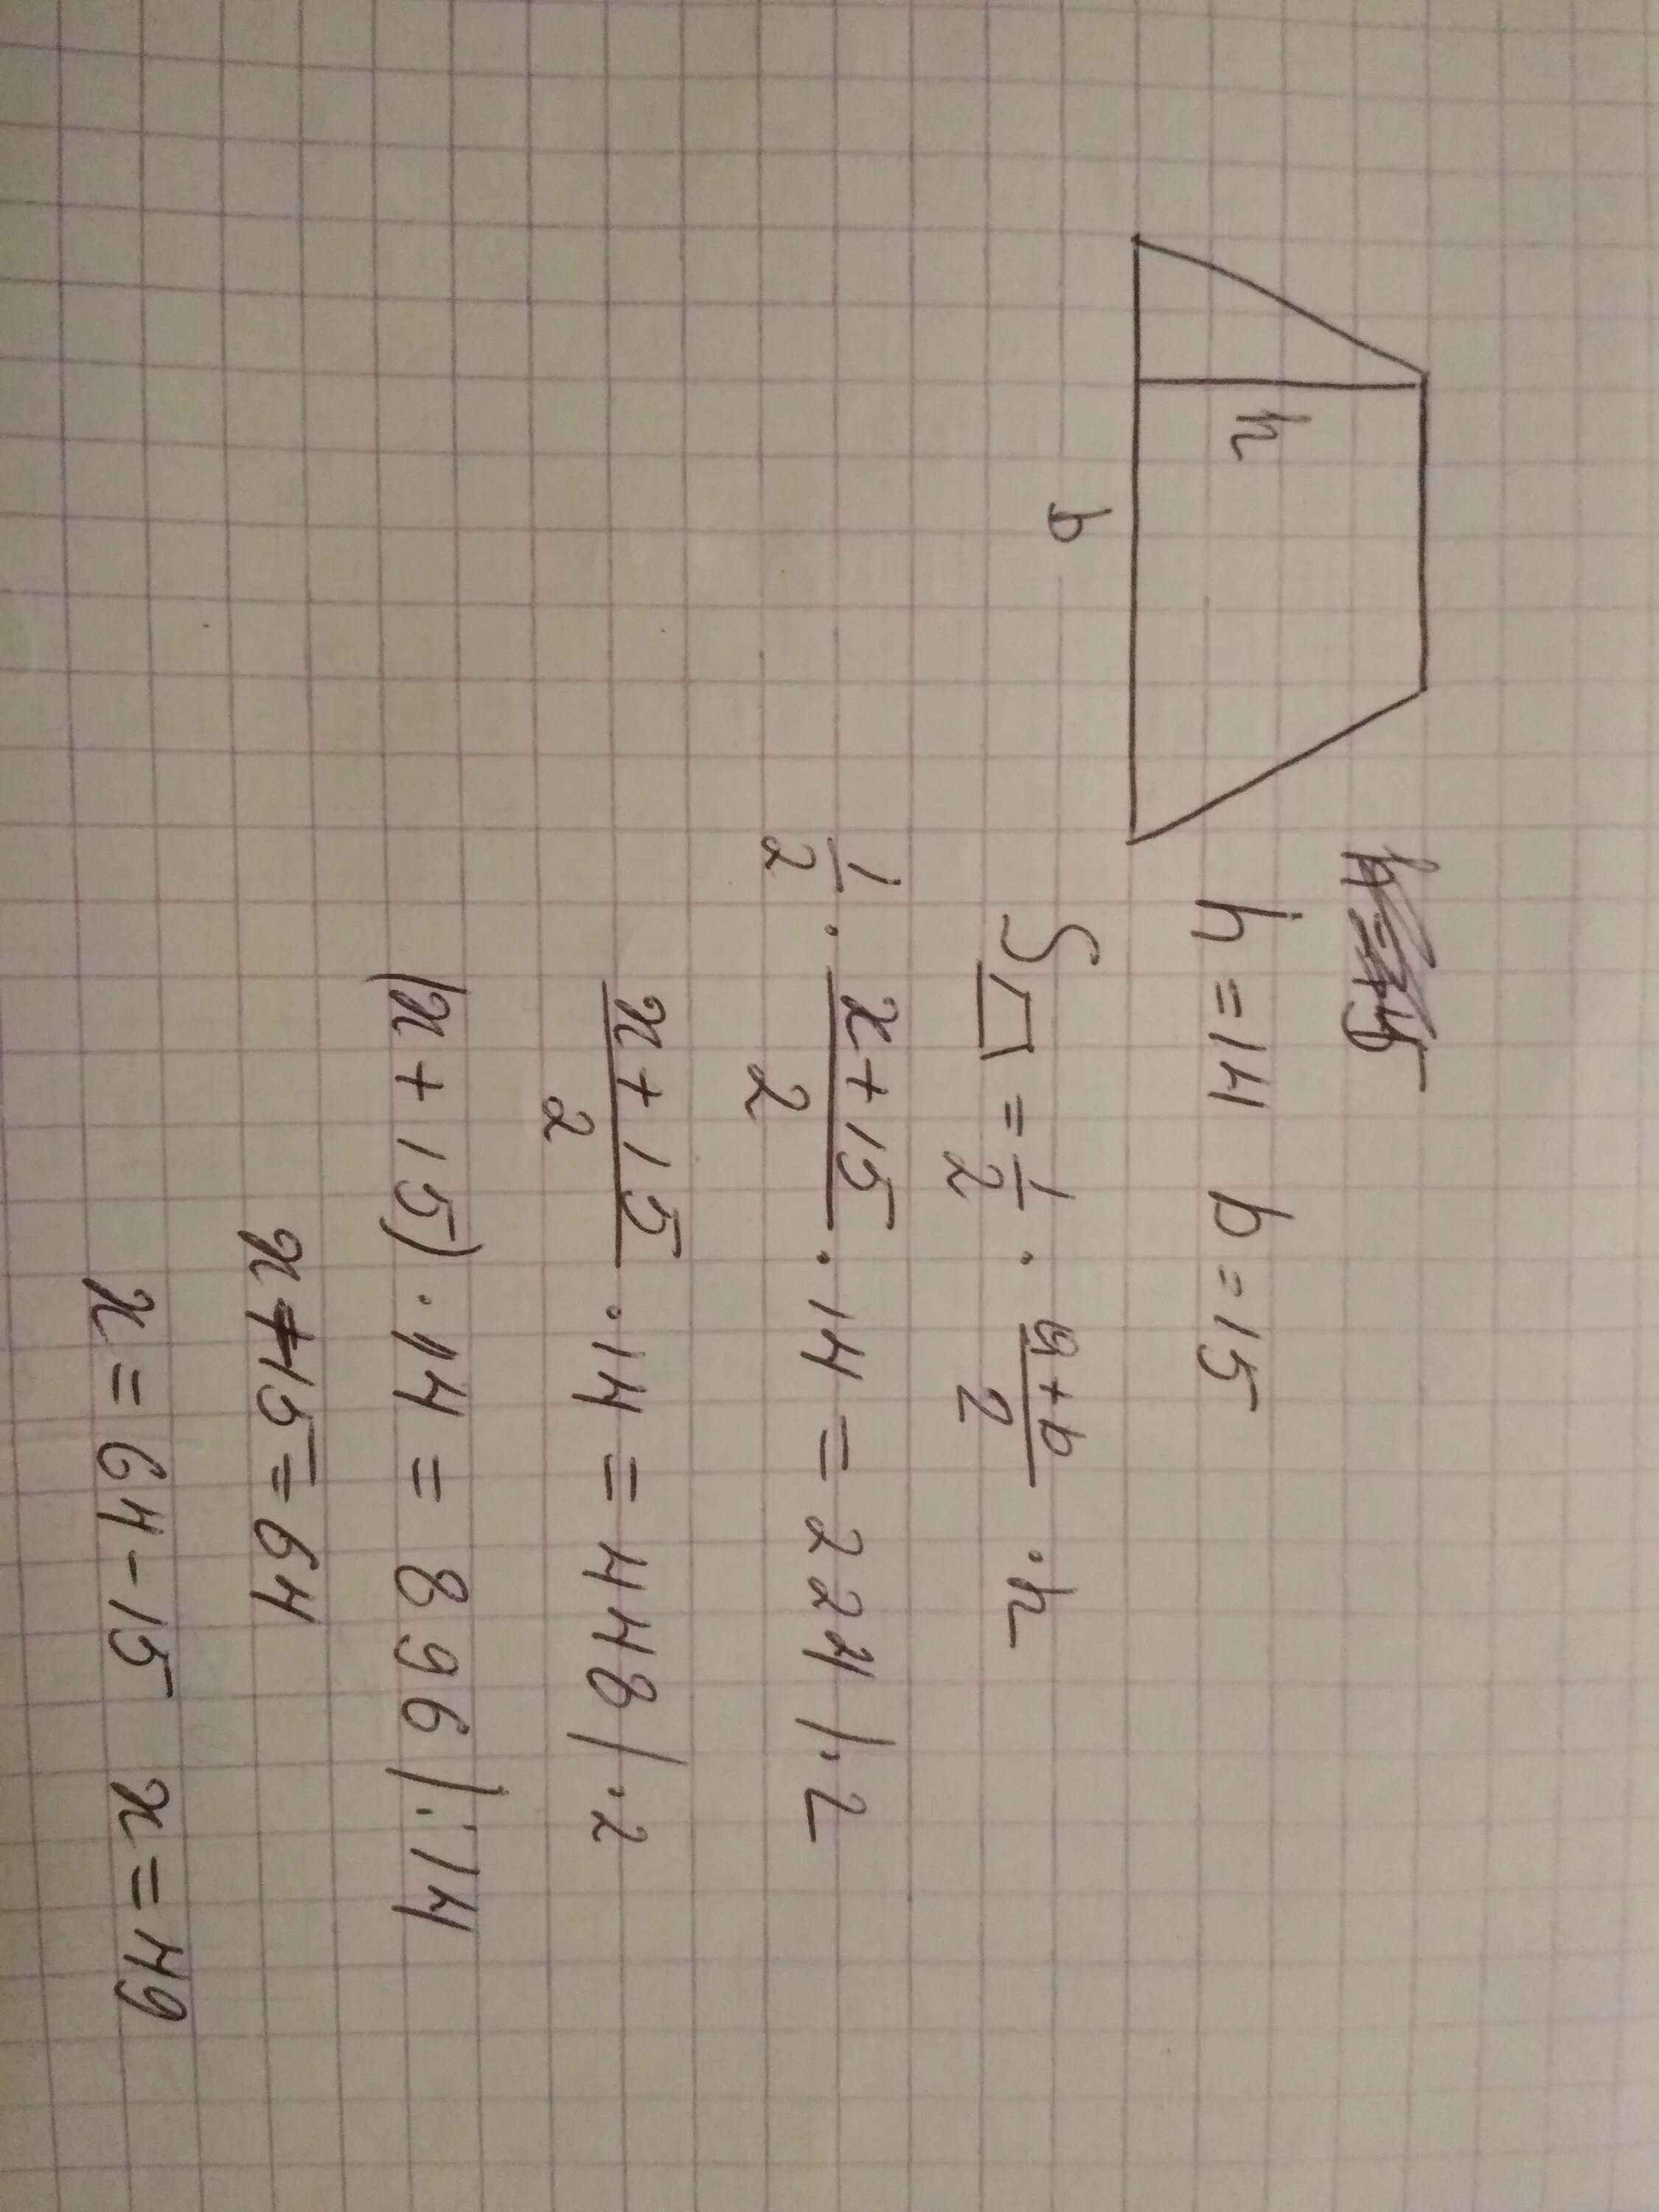 h = 14 b = 15
h
b
S▱ = 1/2 · (a+b)/2 · h
1/2 · (x+15)/2 · 14 = 224 |·2
(x+15)/2 · 14 = 448 |·2
(x+15)·14 = 896 |:14
x+15=64
x=64-15 x=49